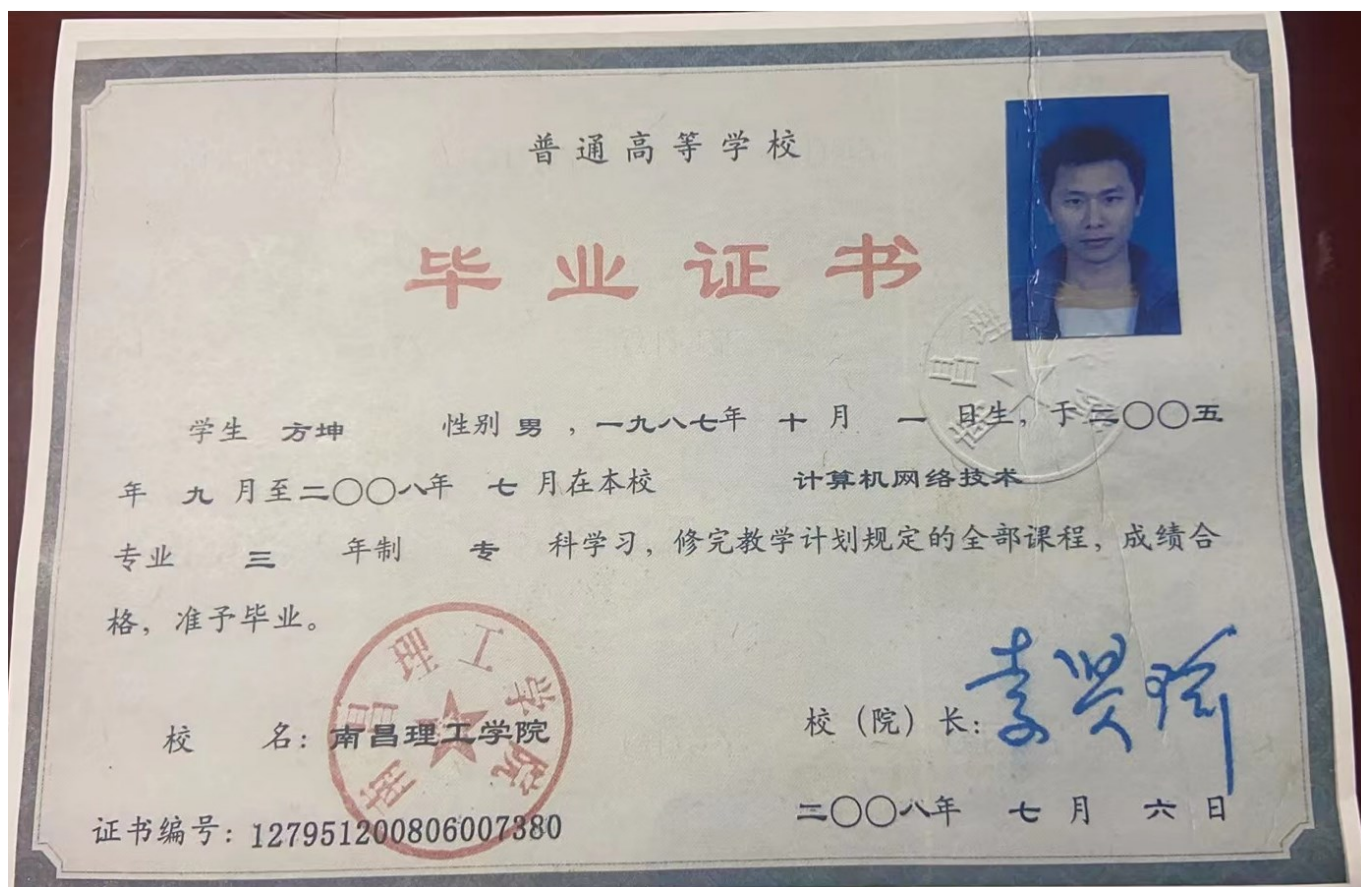 普通高等学校
毕业证书
学生 方坤 性别 男 ，一九八七年 十 月 一 日生，于二〇〇五
年 九 月至二〇〇八年 七 月在本校 计算机网络技术
专业 三 年制 专 科学习，修完教学计划规定的全部课程，成绩合
格，准予毕业。
校 名：南昌理工学院
校（院）长：李贤瑜
二〇〇八年 七 月 六 日
证书编号：127951200806007380
南昌理工学院